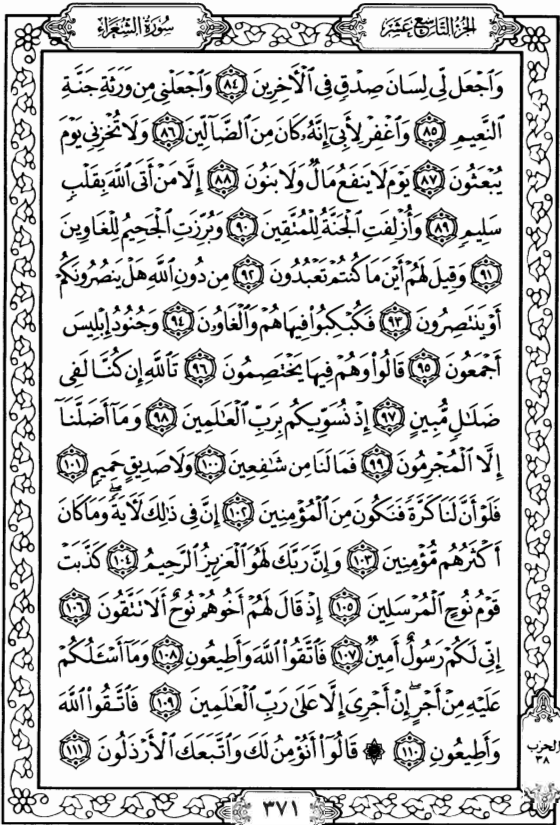 سُورَةُ الشُّعَرَاءِ
الجُزْءُ التَّاسِعَ عَشَرَ
وَاجْعَل لِّي لِسَانَ صِدْقٍ فِي الْآخِرِينَ ٨٤ وَاجْعَلْنِي مِن وَرَثَةِ جَنَّةِ
النَّعِيمِ ٨٥ وَاغْفِرْ لِأَبِي إِنَّهُ كَانَ مِنَ الضَّالِّينَ ٨٦ وَلَا تُخْزِنِي يَوْمَ
يُبْعَثُونَ ٨٧ يَوْمَ لَا يَنفَعُ مَالٌ وَلَا بَنُونَ ٨٨ إِلَّا مَنْ أَتَى اللَّهَ بِقَلْبٍ
سَلِيمٍ ٨٩ وَأُزْلِفَتِ الْجَنَّةُ لِلْمُتَّقِينَ ٩٠ وَبُرِّزَتِ الْجَحِيمُ لِلْغَاوِينَ
٩١ وَقِيلَ لَهُمْ أَيْنَ مَا كُنتُمْ تَعْبُدُونَ ٩٢ مِن دُونِ اللَّهِ هَلْ يَنصُرُونَكُمْ
أَوْ يَنتَصِرُونَ ٩٣ فَكُبْكِبُوا فِيهَا هُمْ وَالْغَاوُونَ ٩٤ وَجُنُودُ إِبْلِيسَ
أَجْمَعُونَ ٩٥ قَالُوا وَهُمْ فِيهَا يَخْتَصِمُونَ ٩٦ تَاللَّهِ إِن كُنَّا لَفِي
ضَلَالٍ مُّبِينٍ ٩٧ إِذْ نُسَوِّيكُم بِرَبِّ الْعَالَمِينَ ٩٨ وَمَا أَضَلَّنَا
إِلَّا الْمُجْرِمُونَ ٩٩ فَمَا لَنَا مِن شَافِعِينَ ١٠٠ وَلَا صَدِيقٍ حَمِيمٍ ١٠١
فَلَوْ أَنَّ لَنَا كَرَّةً فَنَكُونَ مِنَ الْمُؤْمِنِينَ ١٠٢ إِنَّ فِي ذَٰلِكَ لَآيَةً ۖ وَمَا كَانَ
أَكْثَرُهُم مُّؤْمِنِينَ ١٠٣ وَإِنَّ رَبَّكَ لَهُوَ الْعَزِيزُ الرَّحِيمُ ١٠٤ كَذَّبَتْ
قَوْمُ نُوحٍ الْمُرْسَلِينَ ١٠٥ إِذْ قَالَ لَهُمْ أَخُوهُمْ نُوحٌ أَلَا تَتَّقُونَ ١٠٦
إِنِّي لَكُمْ رَسُولٌ أَمِينٌ ١٠٧ فَاتَّقُوا اللَّهَ وَأَطِيعُونِ ١٠٨ وَمَا أَسْأَلُكُمْ
عَلَيْهِ مِنْ أَجْرٍ ۖ إِنْ أَجْرِيَ إِلَّا عَلَىٰ رَبِّ الْعَالَمِينَ ١٠٩ فَاتَّقُوا اللَّهَ
وَأَطِيعُونِ ١١٠ ۞ قَالُوا أَنُؤْمِنُ لَكَ وَاتَّبَعَكَ الْأَرْذَلُونَ ١١١
الحزب
٣٨
٣٧١